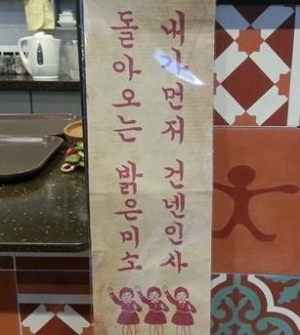 내가먼저 건넨인사
돌아오는 밝은미소